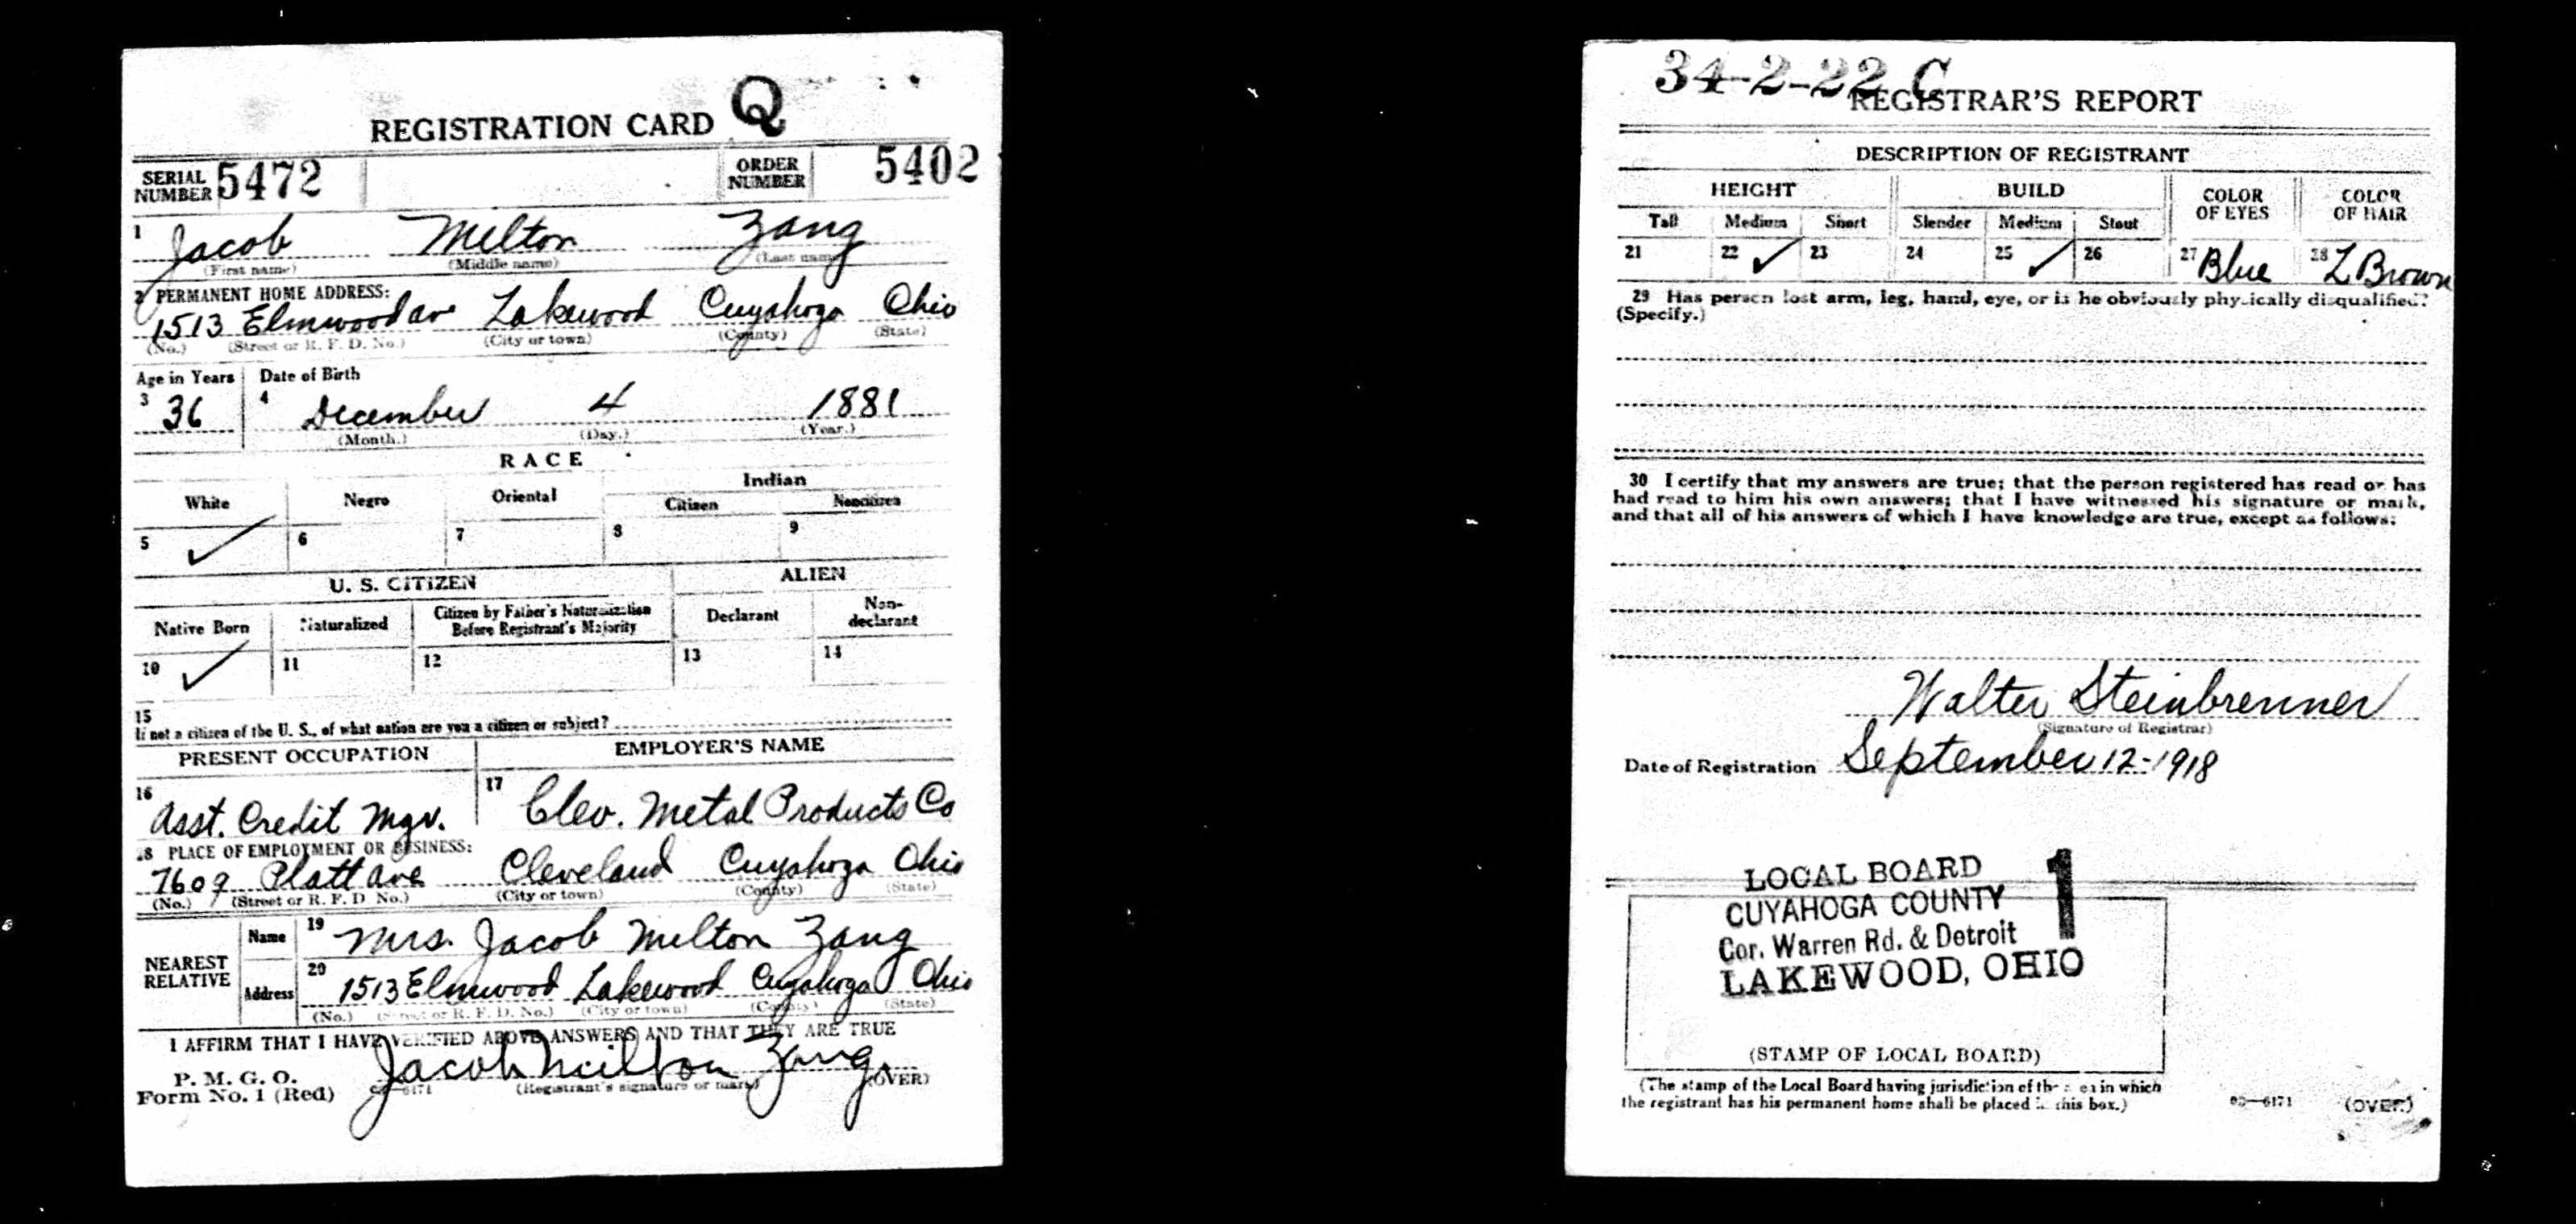 REGISTRATION CARD Q
SERIAL NUMBER 5472 ORDER NUMBER 5402
1 Jacob Milton Zang
(First name) (Middle name) (Last name)
2 PERMANENT HOME ADDRESS:
1513 Elmwood av Lakewood Cuyahoga Ohio
(No.) (Street or R. F. D. No.) (City or town) (County) (State)
Age in Years Date of Birth
3 36 4 December 4 1881
(Month.) (Day.) (Year.)
RACE
White Negro Oriental Indian
Citizen Noncitizen
5 ✓ 6 7 8 9
U. S. CITIZEN ALIEN
Native Born Naturalized Citizen by Father's Naturalization Before Registrant's Majority Declarant Non-declarant
10 ✓ 11 12 13 14
15
If not a citizen of the U. S., of what nation are you a citizen or subject?
PRESENT OCCUPATION EMPLOYER'S NAME
16 Asst. Credit Mgr. 17 Clev. Metal Products Co
18 PLACE OF EMPLOYMENT OR BUSINESS:
7609 Platt Ave Cleveland Cuyahoga Ohio
(No.) (Street or R. F. D. No.) (City or town) (County) (State)
NEAREST RELATIVE
Name 19 Mrs. Jacob Milton Zang
Address 20 1513 Elmwood Lakewood Cuyahoga Ohio
(No.) (Street or R. F. D. No.) (City or town) (County) (State)
I AFFIRM THAT I HAVE VERIFIED ABOVE ANSWERS AND THAT THEY ARE TRUE
P. M. G. O.
Form No. 1 (Red) Jacob Milton Zang
(Registrant's signature or mark) (OVER)
34-2-22 C
REGISTRAR'S REPORT
DESCRIPTION OF REGISTRANT
HEIGHT BUILD COLOR OF EYES COLOR OF HAIR
Tall Medium Short Slender Medium Stout
21 22 ✓ 23 24 25 ✓ 26 27 Blue 28 L Brown
29 Has person lost arm, leg, hand, eye, or is he obviously physically disqualified?
(Specify.)
30 I certify that my answers are true; that the person registered has read or has
had read to him his own answers; that I have witnessed his signature or mark,
and that all of his answers of which I have knowledge are true, except as follows:
Walter Steinbrenner
(Signature of Registrar)
Date of Registration September 12-1918
LOCAL BOARD 1
CUYAHOGA COUNTY
Cor. Warren Rd. & Detroit
LAKEWOOD, OHIO
(STAMP OF LOCAL BOARD)
(The stamp of the Local Board having jurisdiction of the area in which
the registrant has his permanent home shall be placed in this box.)
03—6171 (OVER)